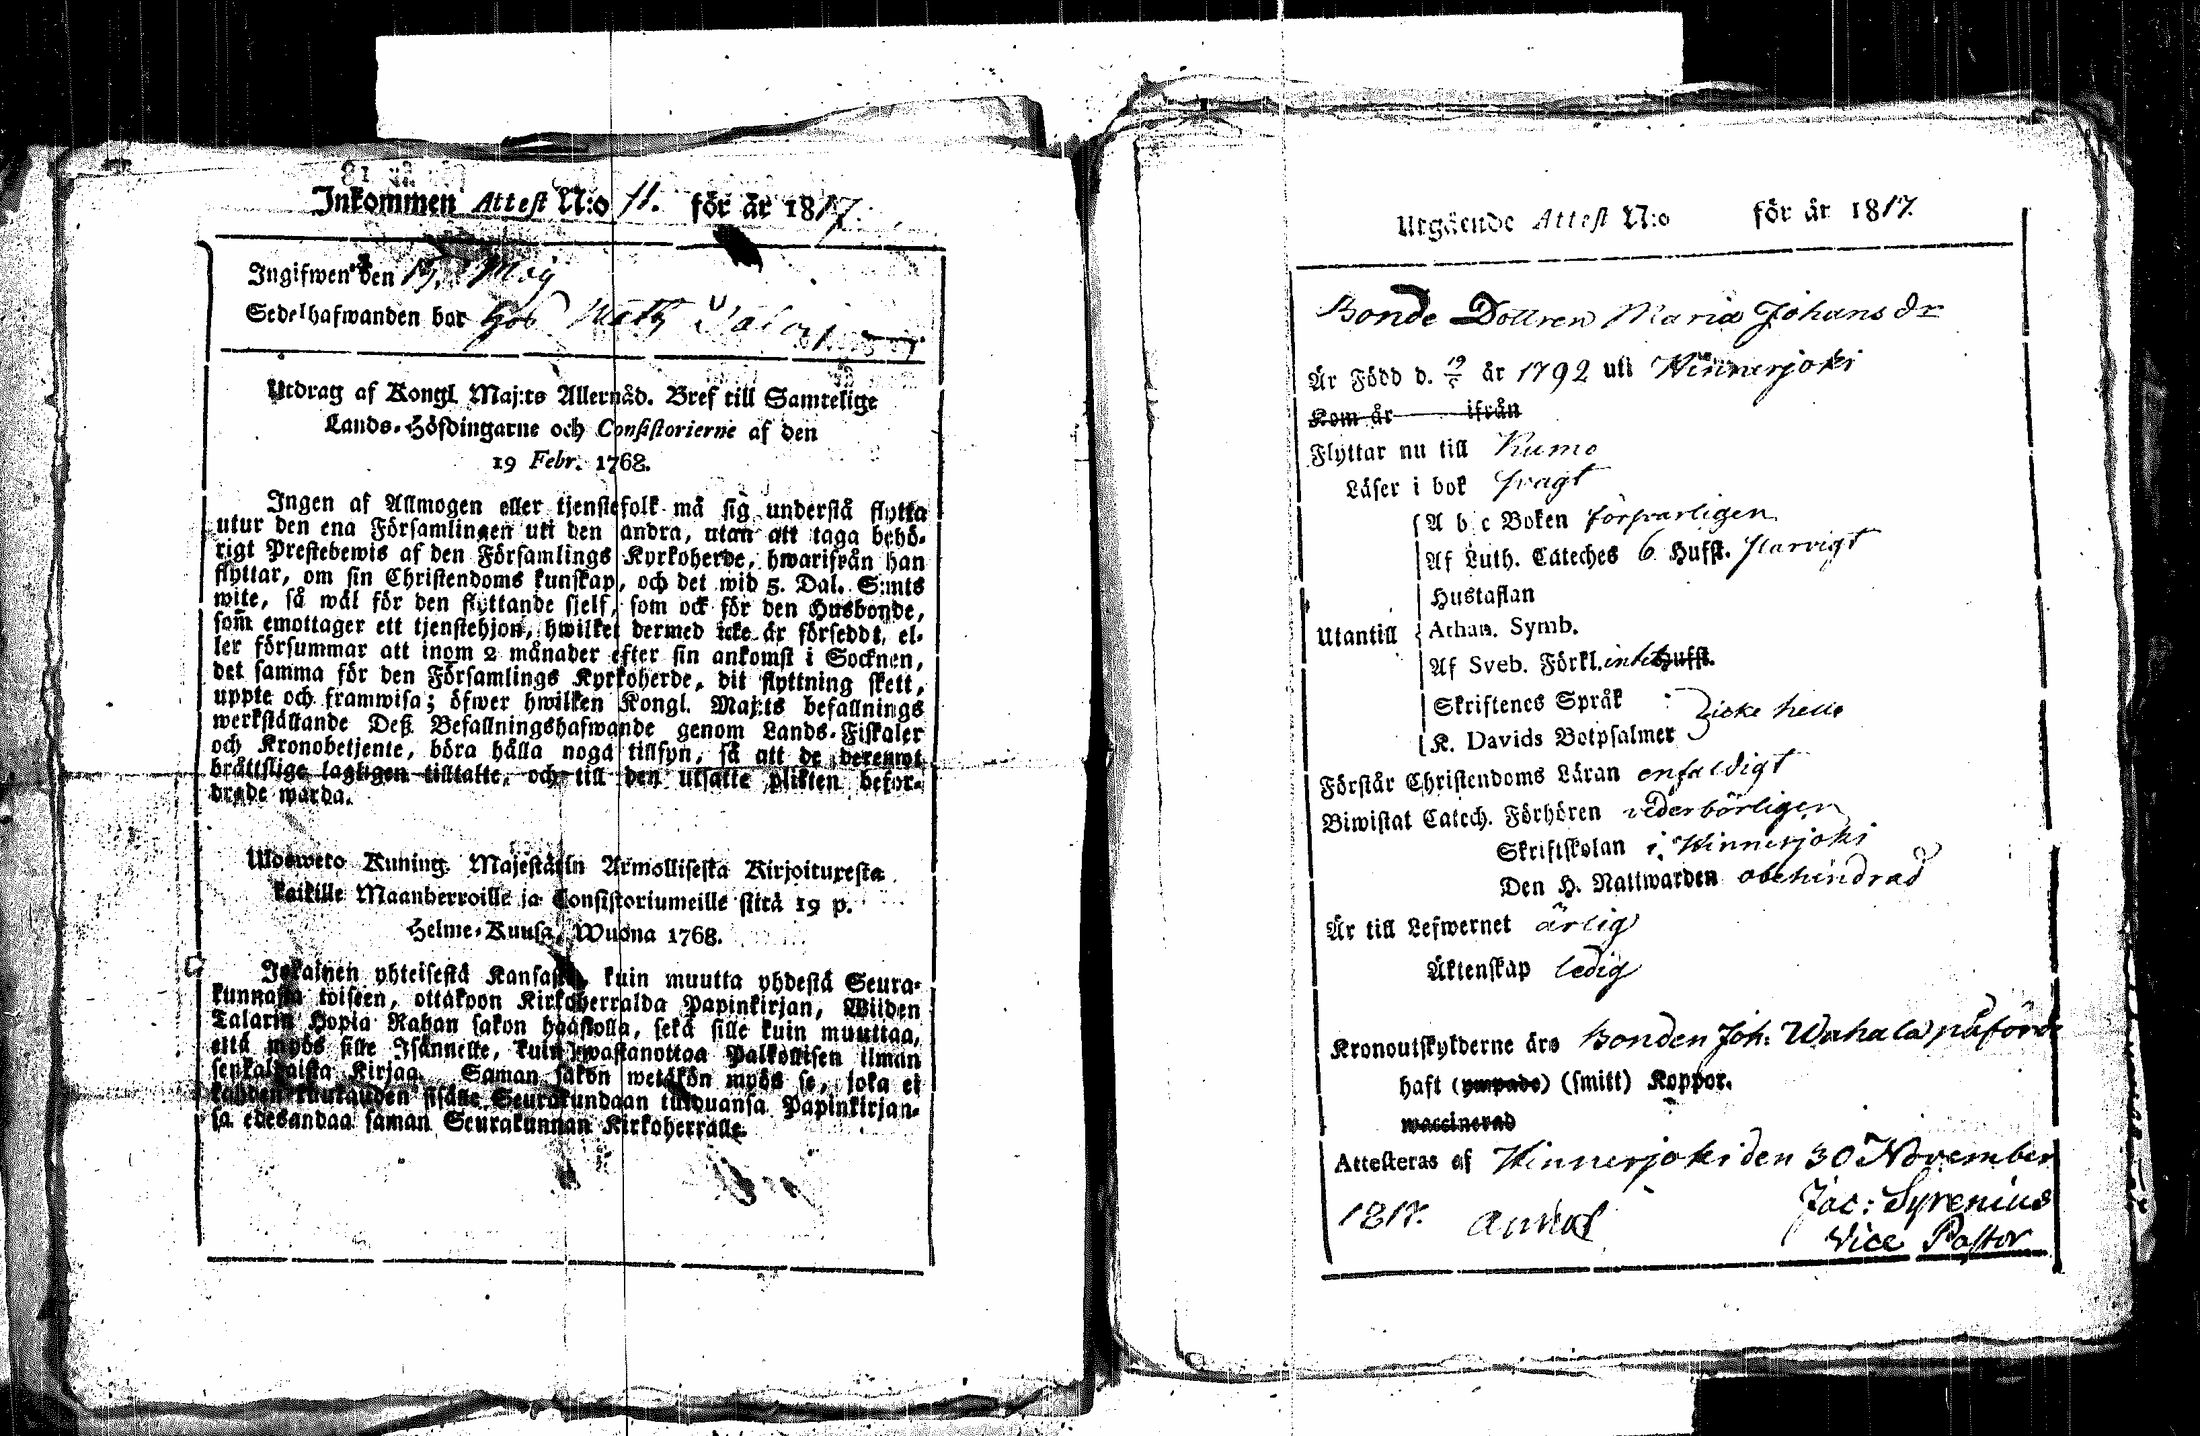 Inkommen Attest N:o 11. för år 1817.
Ingifwen den 17. Maij
Sedelhafwanden bor hos Matts
Utdrag af Kongl. Maj:ts Allernåd. Bref till Samtelige
Lands-Höfdingarne och Consistorierne af den
19 Febr. 1768.
Ingen af Allmogen eller tjenstefolk må sig understå flytta
utur den ena Församlingen uti den andra, utan att taga behö-
rigt Prestebewis af den Församlings Kyrkoherde, hwarifrån han
flyttar, om sin Christendoms kunskap, och det wid 5. Dal. S:mts
wite, så wäl för den flyttande sjelf, som ock för den Husbonde,
som emottager ett tjenstehjon, hwilket dermed icke är förseddt, el-
ler försummar att inom 2 månader efter sin ankomst i Socknen,
det samma för den Församlings Kyrkoherde, dit flyttning skett,
uppte och framwisa; öfwer hwilken Kongl. Maj:ts befallnings
werkställande Deß Befallningshafwande genom Lands-Fiskaler
och Kronobetjente, böra hålla noga tillsyn, så att de deremot
bråttslige lagligen tilltalte, och till den utsatte plikten befor-
drade warda.
Ulosweto Kuning. Majestätin Armollisesta Kirjoituxesta
kaikille Maanherroille ja Consistoriumeille siitä 19 p.
Helme-Kuusa, Wuona 1768.
Jokainen yhteisestä Kansasta, kuin muutta yhdestä Seura-
kunnasta toiseen, ottakoon Kirkoherralda Papinkirjan, Wiiden
Talarin Hopia Rahan sakon haastolla, sekä sille kuin muuttaa,
että myös sille Isännelle, kuin wastanottaa Palkollisen ilman
senkaltaista Kirjaa. Saman sakon wetäkön myös se, joka ei
kahden kuukauden sisälle Seurakundaan tulduansa Papinkirjan-
sa edesandaa saman Seurakunnan Kirkoherralle.
Utgående Attest N:o för år 1817.
Bonde Dottren Maria Johans dr
Är Född d. 19/5 år 1792 uti Hinnerjoki
Kom år ifrån
Flyttar nu till Kumo
Läser i bok svagt
A b c Boken försvarligen
Af Luth. Cateches 6 Hufst. starvigt
Hustaflan
Utantill Athan. Symb.
Af Sveb. Förkl. intet Hufst.
Skriftenes Språk
icke hela
K. Davids Botpsalmer
Förstår Christendoms Läran enfaldigt
Biwistat Catech. Förhören vederbörligen
Skriftskolan i Hinnerjoki
Den H. Nattwarden obehindrad
Är till Lefwernet ärlig
Äktenskap ledig
Kronoutskylderne äro Bonden Joh: Wahala påförde
haft (ympade) (smitt) Koppor.
waccinerad
Attesteras af Hinnerjoki den 30 November
1817.
Jac: Syrenius
Vice Pastor